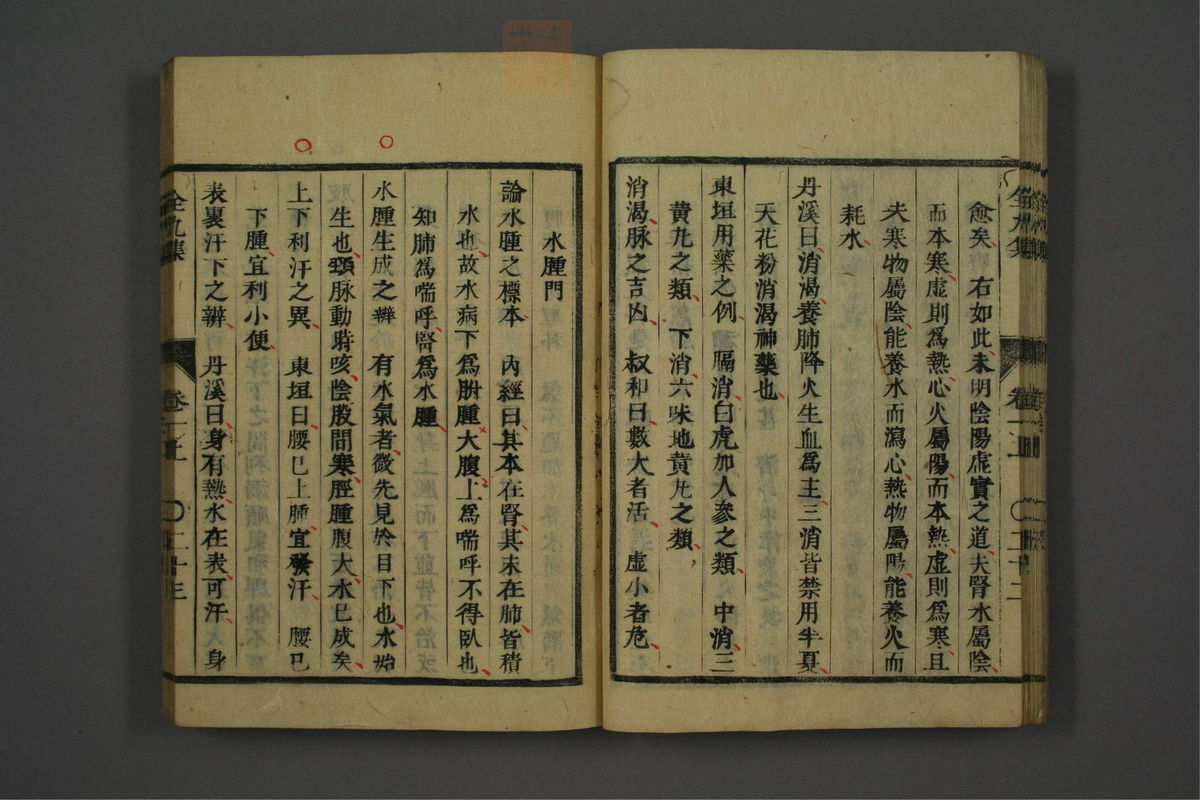 愈矣 右如此未明陰陽虛實之道夫腎水屬陰
而本寒虛則爲熱心火屬陽而本熱虛則爲寒且
夫寒物屬陰能養水而瀉心熱物屬陽能養火而
耗水
丹溪曰消渴養肺降火生血爲主三消皆禁用半夏
天花粉消渴神藥也
東垣用藥之例 膈消白虎加人參之類 中消三
黃丸之類 下消六味地黃丸之類
消渴脉之吉凶 叔和曰數大者活 虛小者危
全九集 卷之二 〇二十二
水腫門
論水腫之標本 內經曰其本在腎其末在肺皆積
水也故水病下爲胕腫大腹上爲喘呼不得臥也
知肺爲喘呼腎爲水腫
水腫生成之辨 有水氣者微先見於目下也水始
生也頸脉動時咳陰股間寒脛腫腹大水已成矣
上下利汗之異 東垣曰腰已上腫宜發汗 腰已
下腫宜利小便
表裏汗下之辨 丹溪曰身有熱水在表可汗 身
全九集 卷之二 〇二十三